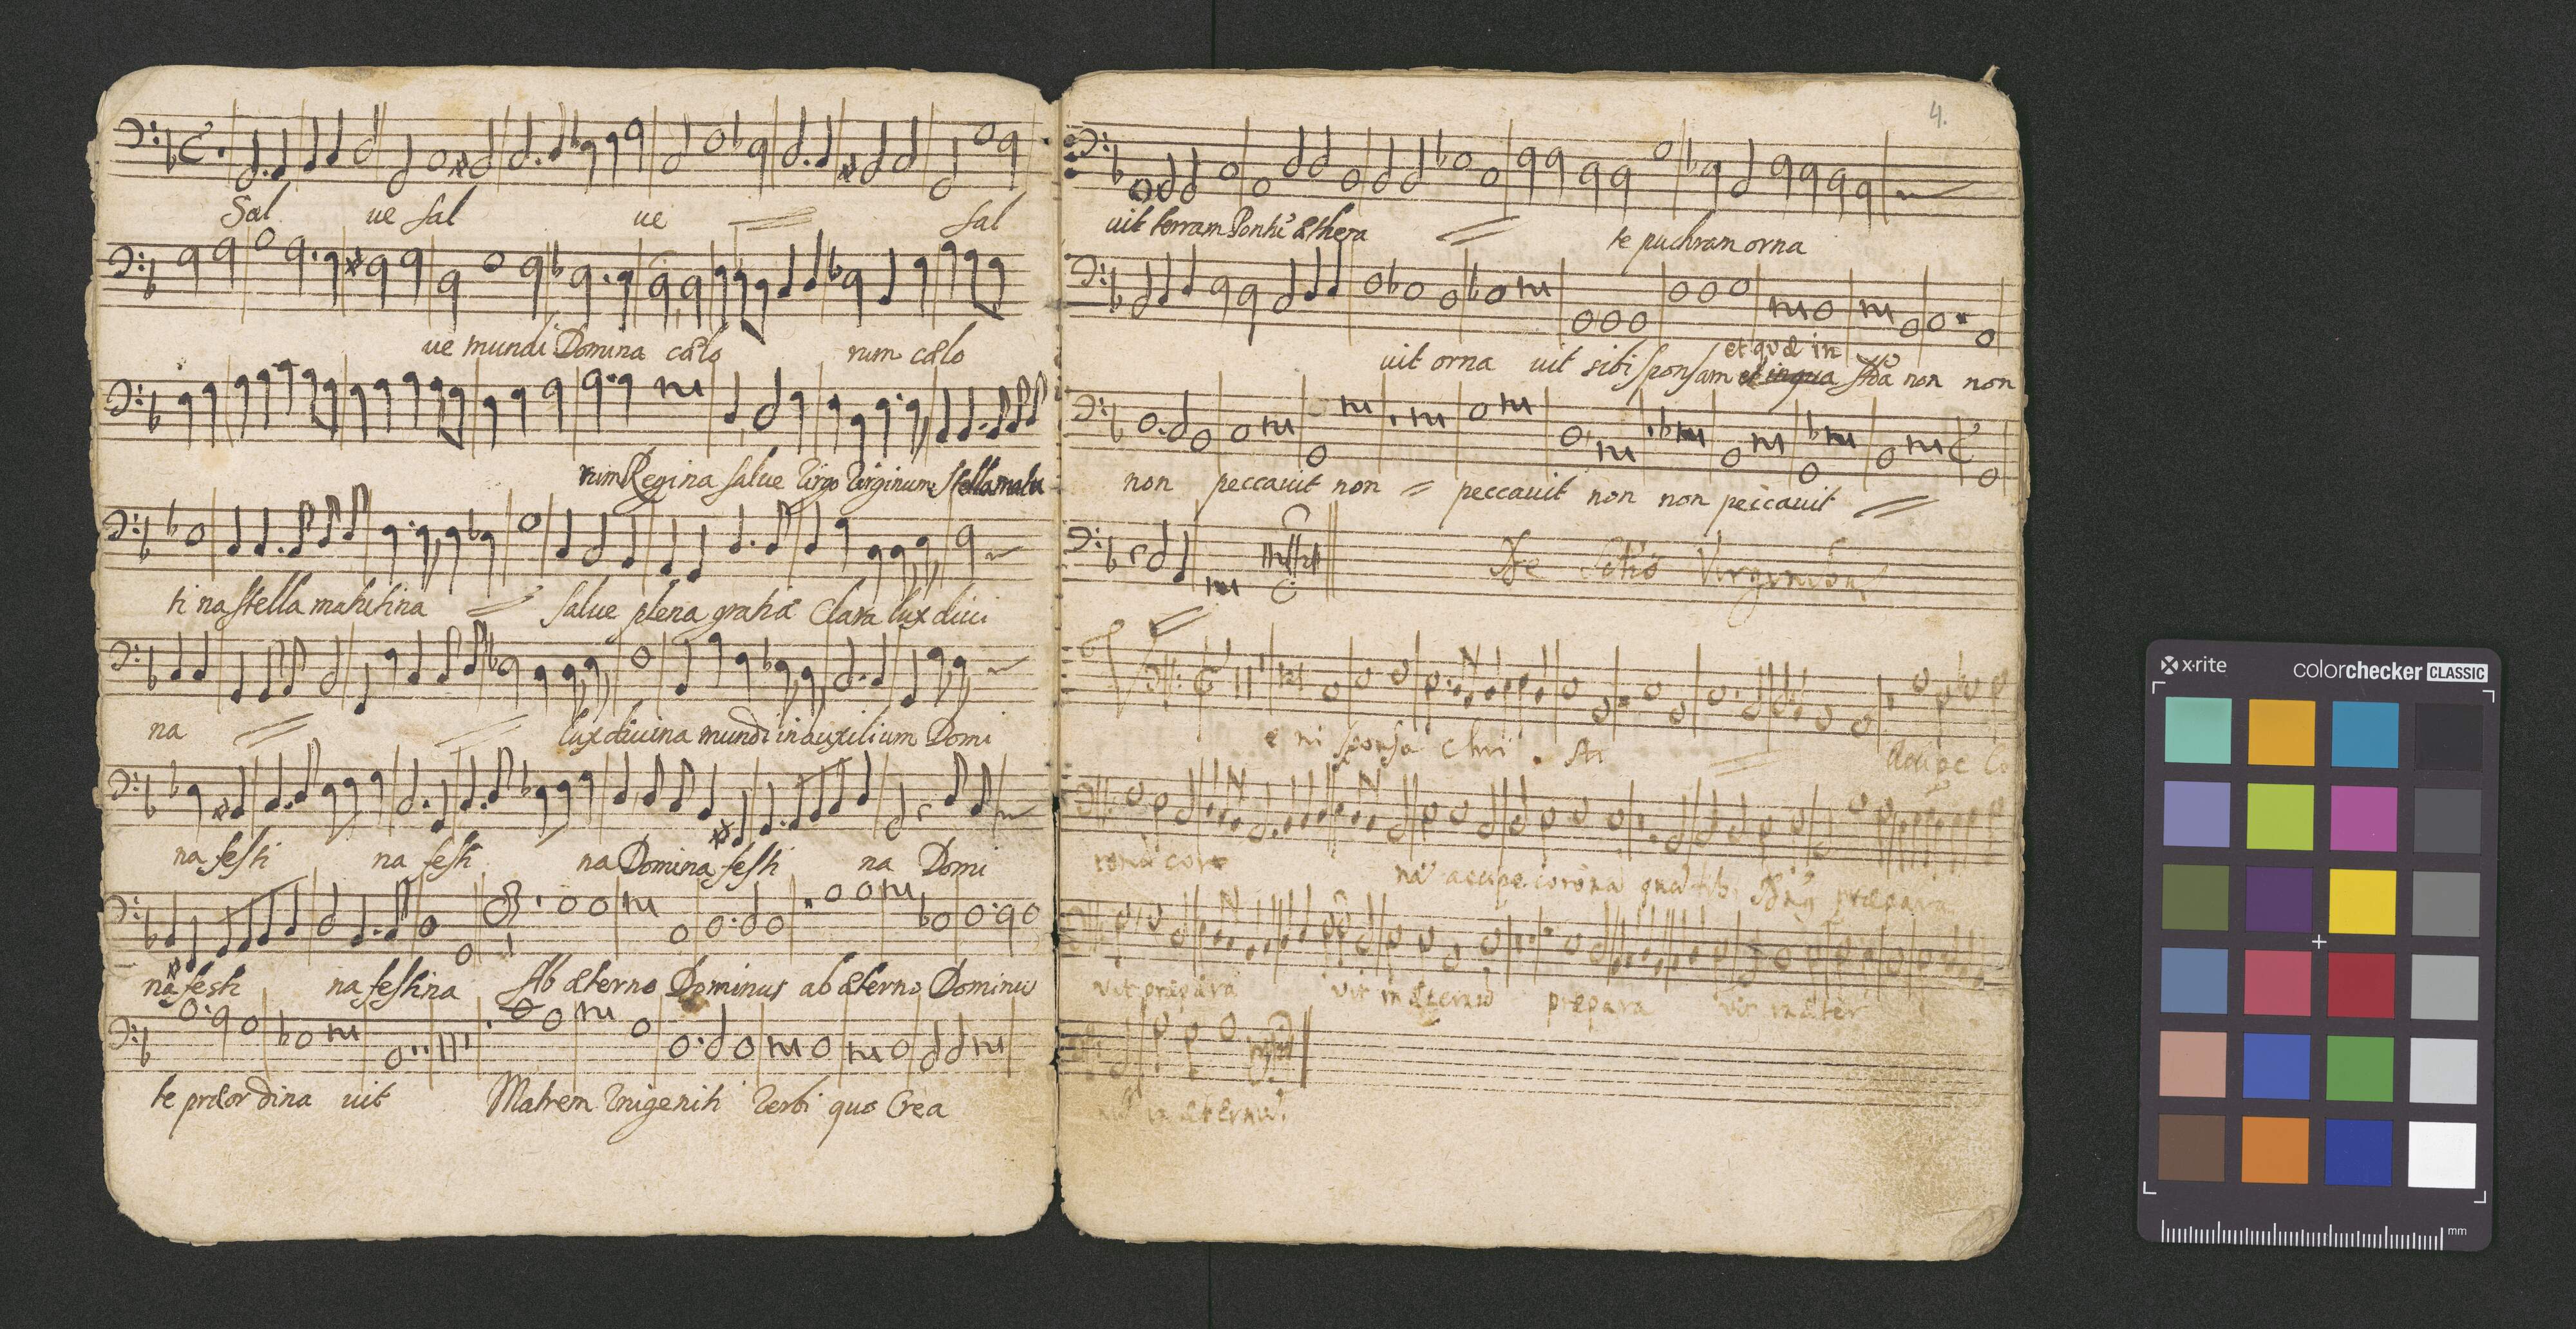 Sal ue sal ue sal
ue mundi Domina cælo rum cælo
rum Regina salue Virgo Virginum stella matu
ti na stella matutina salue plena gratiæ Clara lux diui
na lux diuina mundi in auxilium Domi
na festi na festi na Domina festi na Domi
na festi na festina Ab æterno Dominus ab æterno Dominu
te præordina uit Matrem Vnigeniti Verbi quo Crea
4.
uit terram Pontũ æthera te puchram orna
uit orna uit sibi sponsam et quæ in Adã non non
non peccauit non peccauit non non peccauit
De Virginibus
e ni sponsa Chri sti Accipe Co
ronã coro nã accipe coronã quã tibi Dñs præpara
vit præpara vit in æternũ præpara vit in æter
nũ in æternũ.
x·rite colorchecker CLASSIC
mm